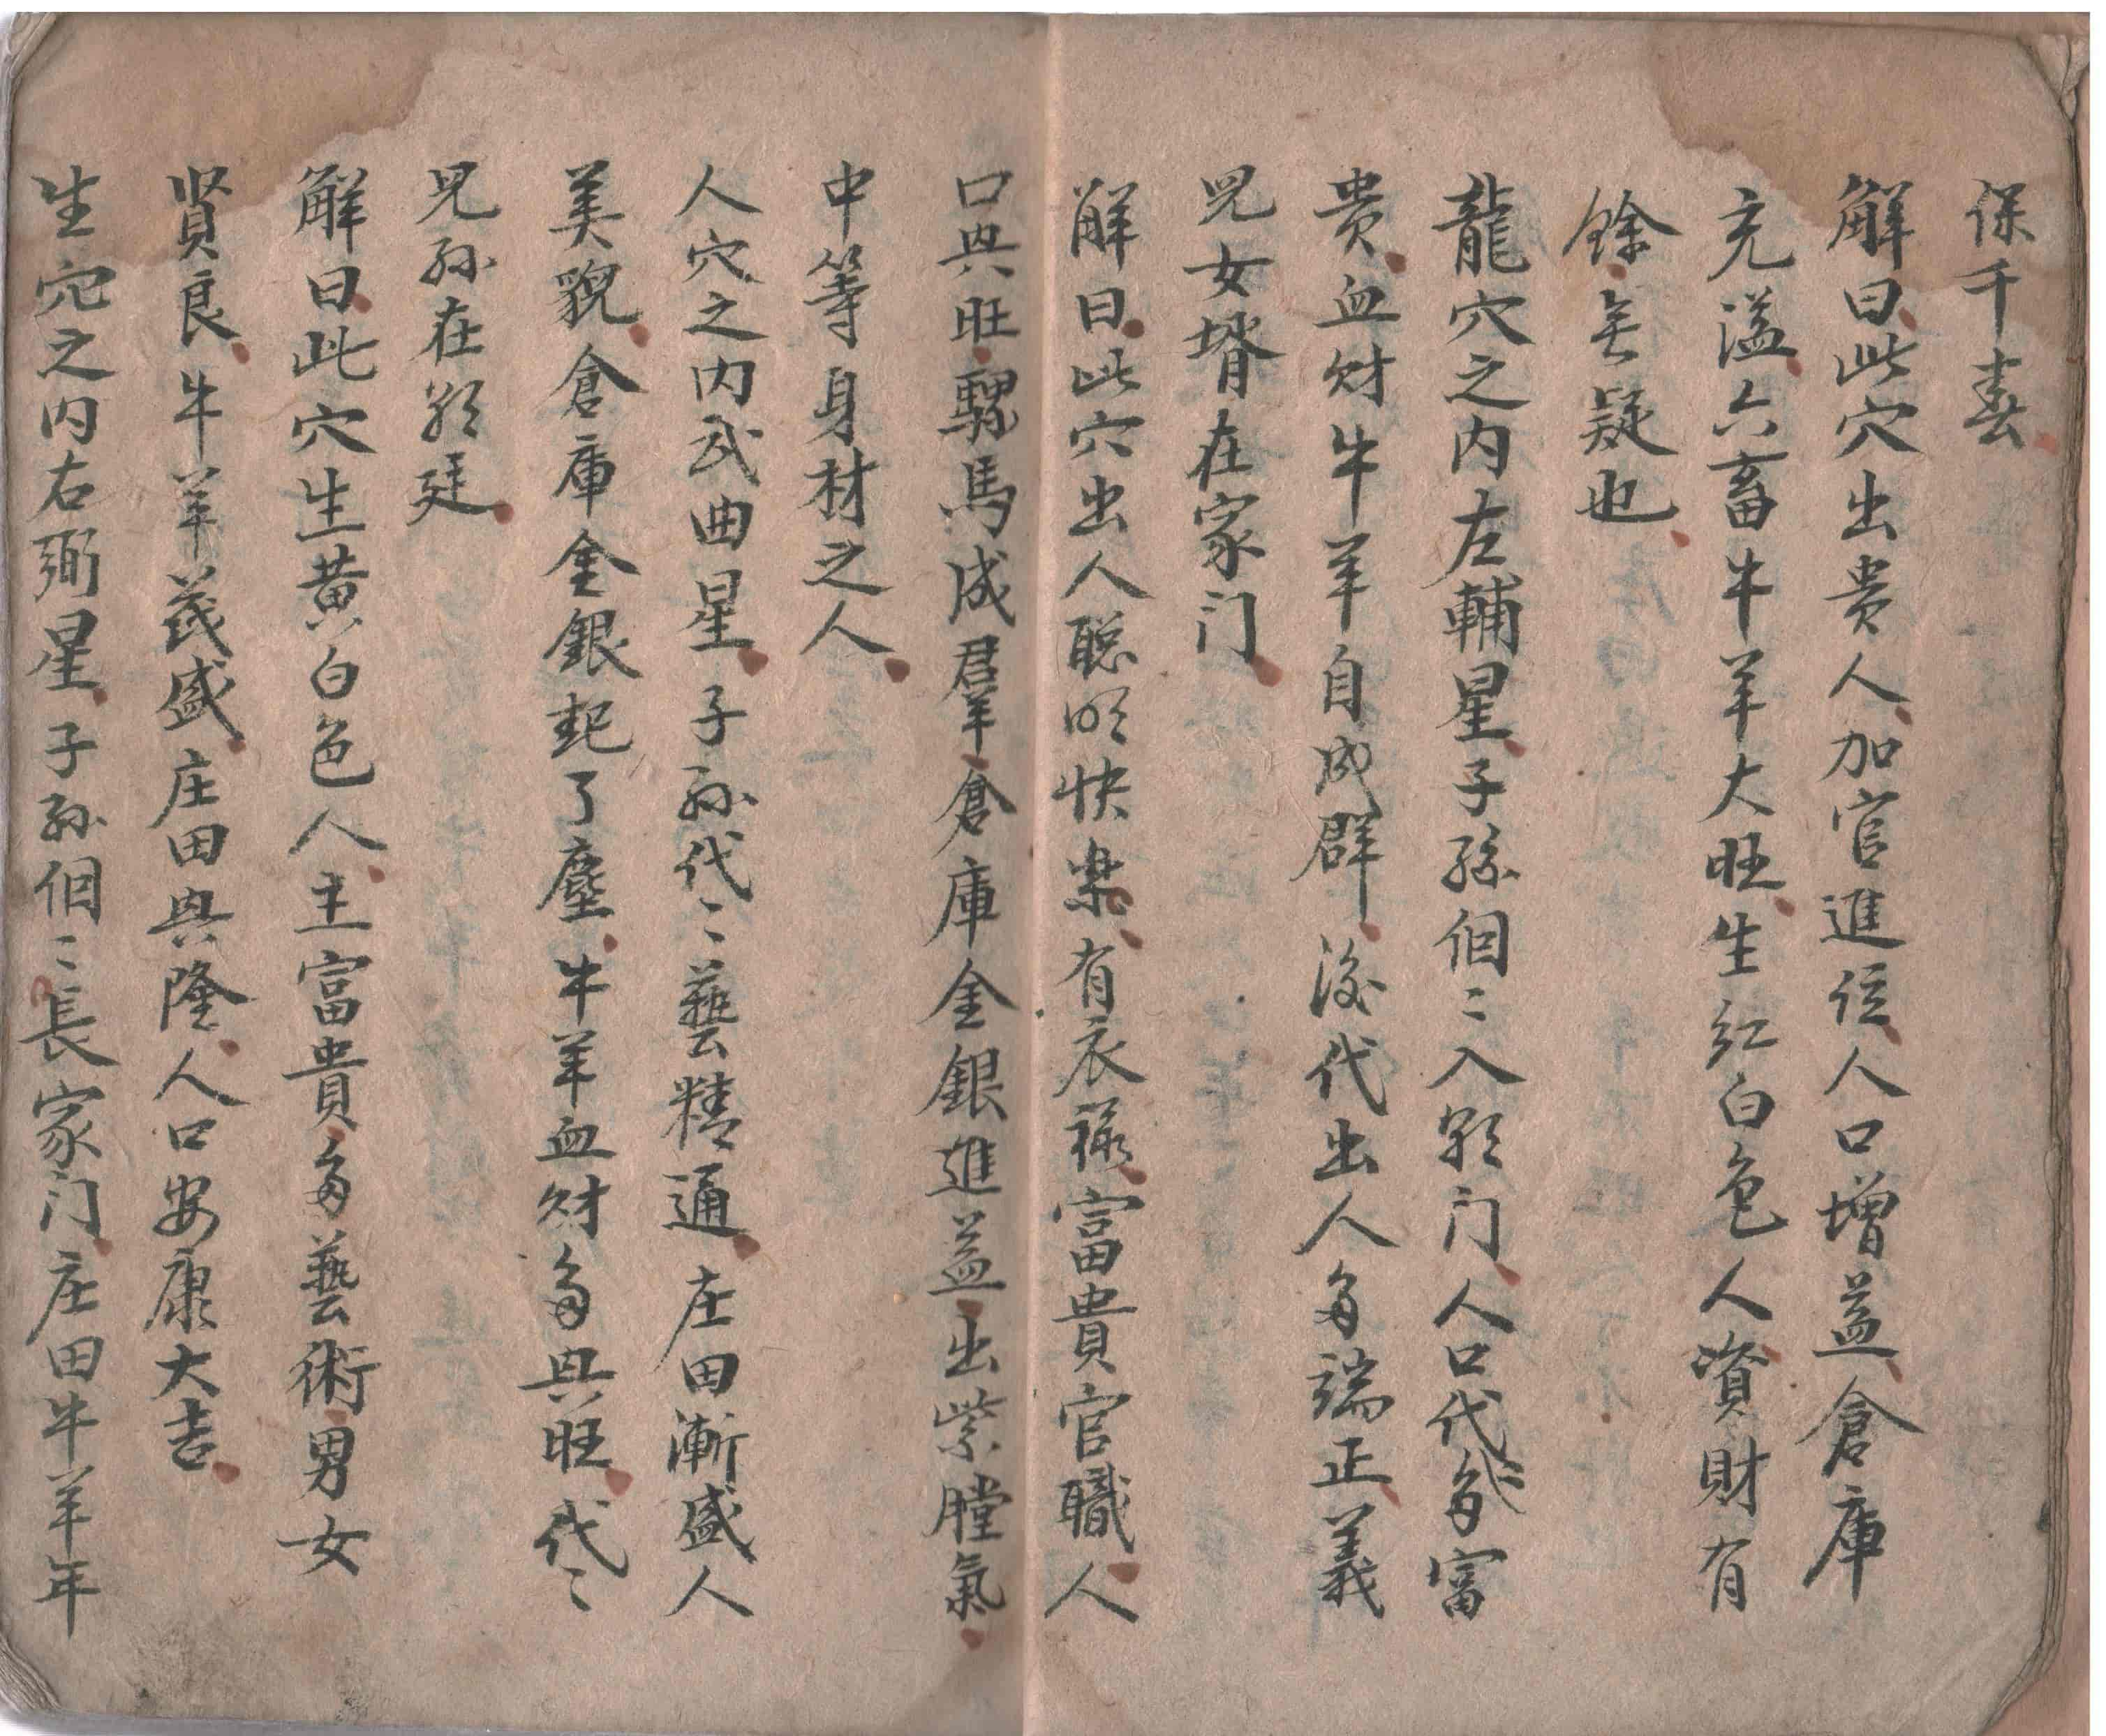 保千春
解曰此穴出贵人加官進位人口增益倉庫
充溢六畜牛羊大旺生紅白色人資財有
餘无疑也
龍穴之内左輔星子孫個〻入朝门人口代〻多富
贵血财牛羊自成群後代出人多端正義
兒女壻在家门
解曰此穴出人聪明快樂有衣禄富貴官職人
口興旺騾馬成羣倉庫金銀進益出紫膛氣
中等身材之人
人穴之内武曲星子孫代〻藝精通庄田漸盛人
美貌倉庫金銀起了塵牛羊血财多興旺代〻
兒孫在朝廷
解曰此穴生黄白色人主富貴多藝術男女
贤良牛羊茂盛庄田興隆人口安康大吉
生穴之内右弼星子孫個〻長家门庄田牛羊年